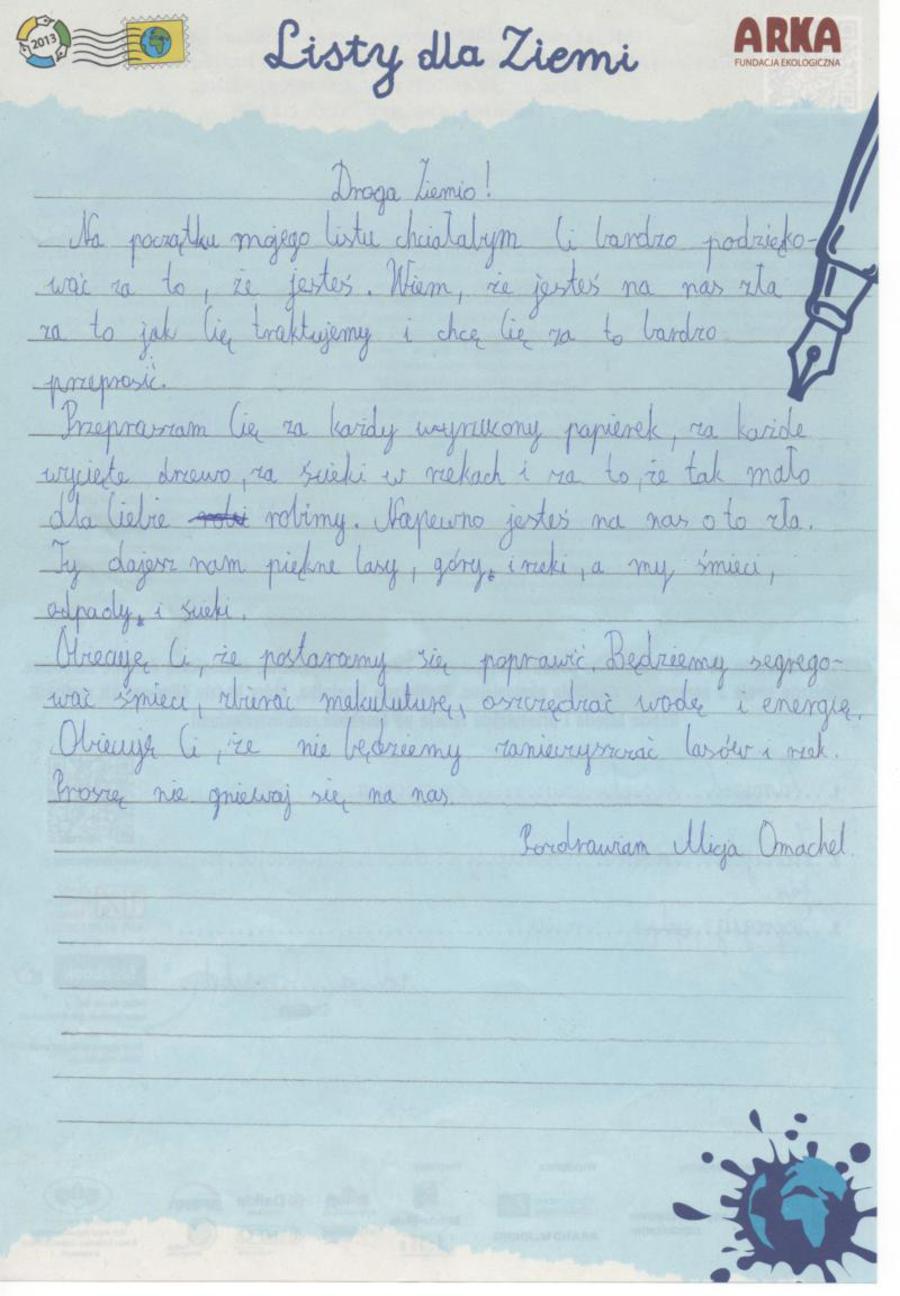 2013
Listy dla Ziemi
ARKA
FUNDACJA EKOLOGICZNA
Droga Ziemio!
Na początku mojego listu chciałabym Ci bardzo podzięko-
wać za to, że jesteś. Wiem, że jesteś na nas zła
za to jak Cię traktujemy i chcę Cię za to bardzo
przeprosić.
Przepraszam Cię za każdy wyrzucony papierek, za każde
wycięte drzewo, za ścieki w rzekach i za to, że tak mało
dla Ciebie robimy. Napewno jesteś na nas o to zła.
Ty dajesz nam piękne lasy, góry, i rzeki, a my śmieci,
odpady, i ścieki.
Obiecuję Ci, że postaramy się poprawić. Będziemy segrego-
wać śmieci, zbierać makuluturę, oszczędzać wodę i energię.
Obiecuję Ci, że nie będziemy zanieczyszczać lasów i rzek.
Proszę nie gniewaj się na nas.
Pozdrawiam Alicja Omachel.